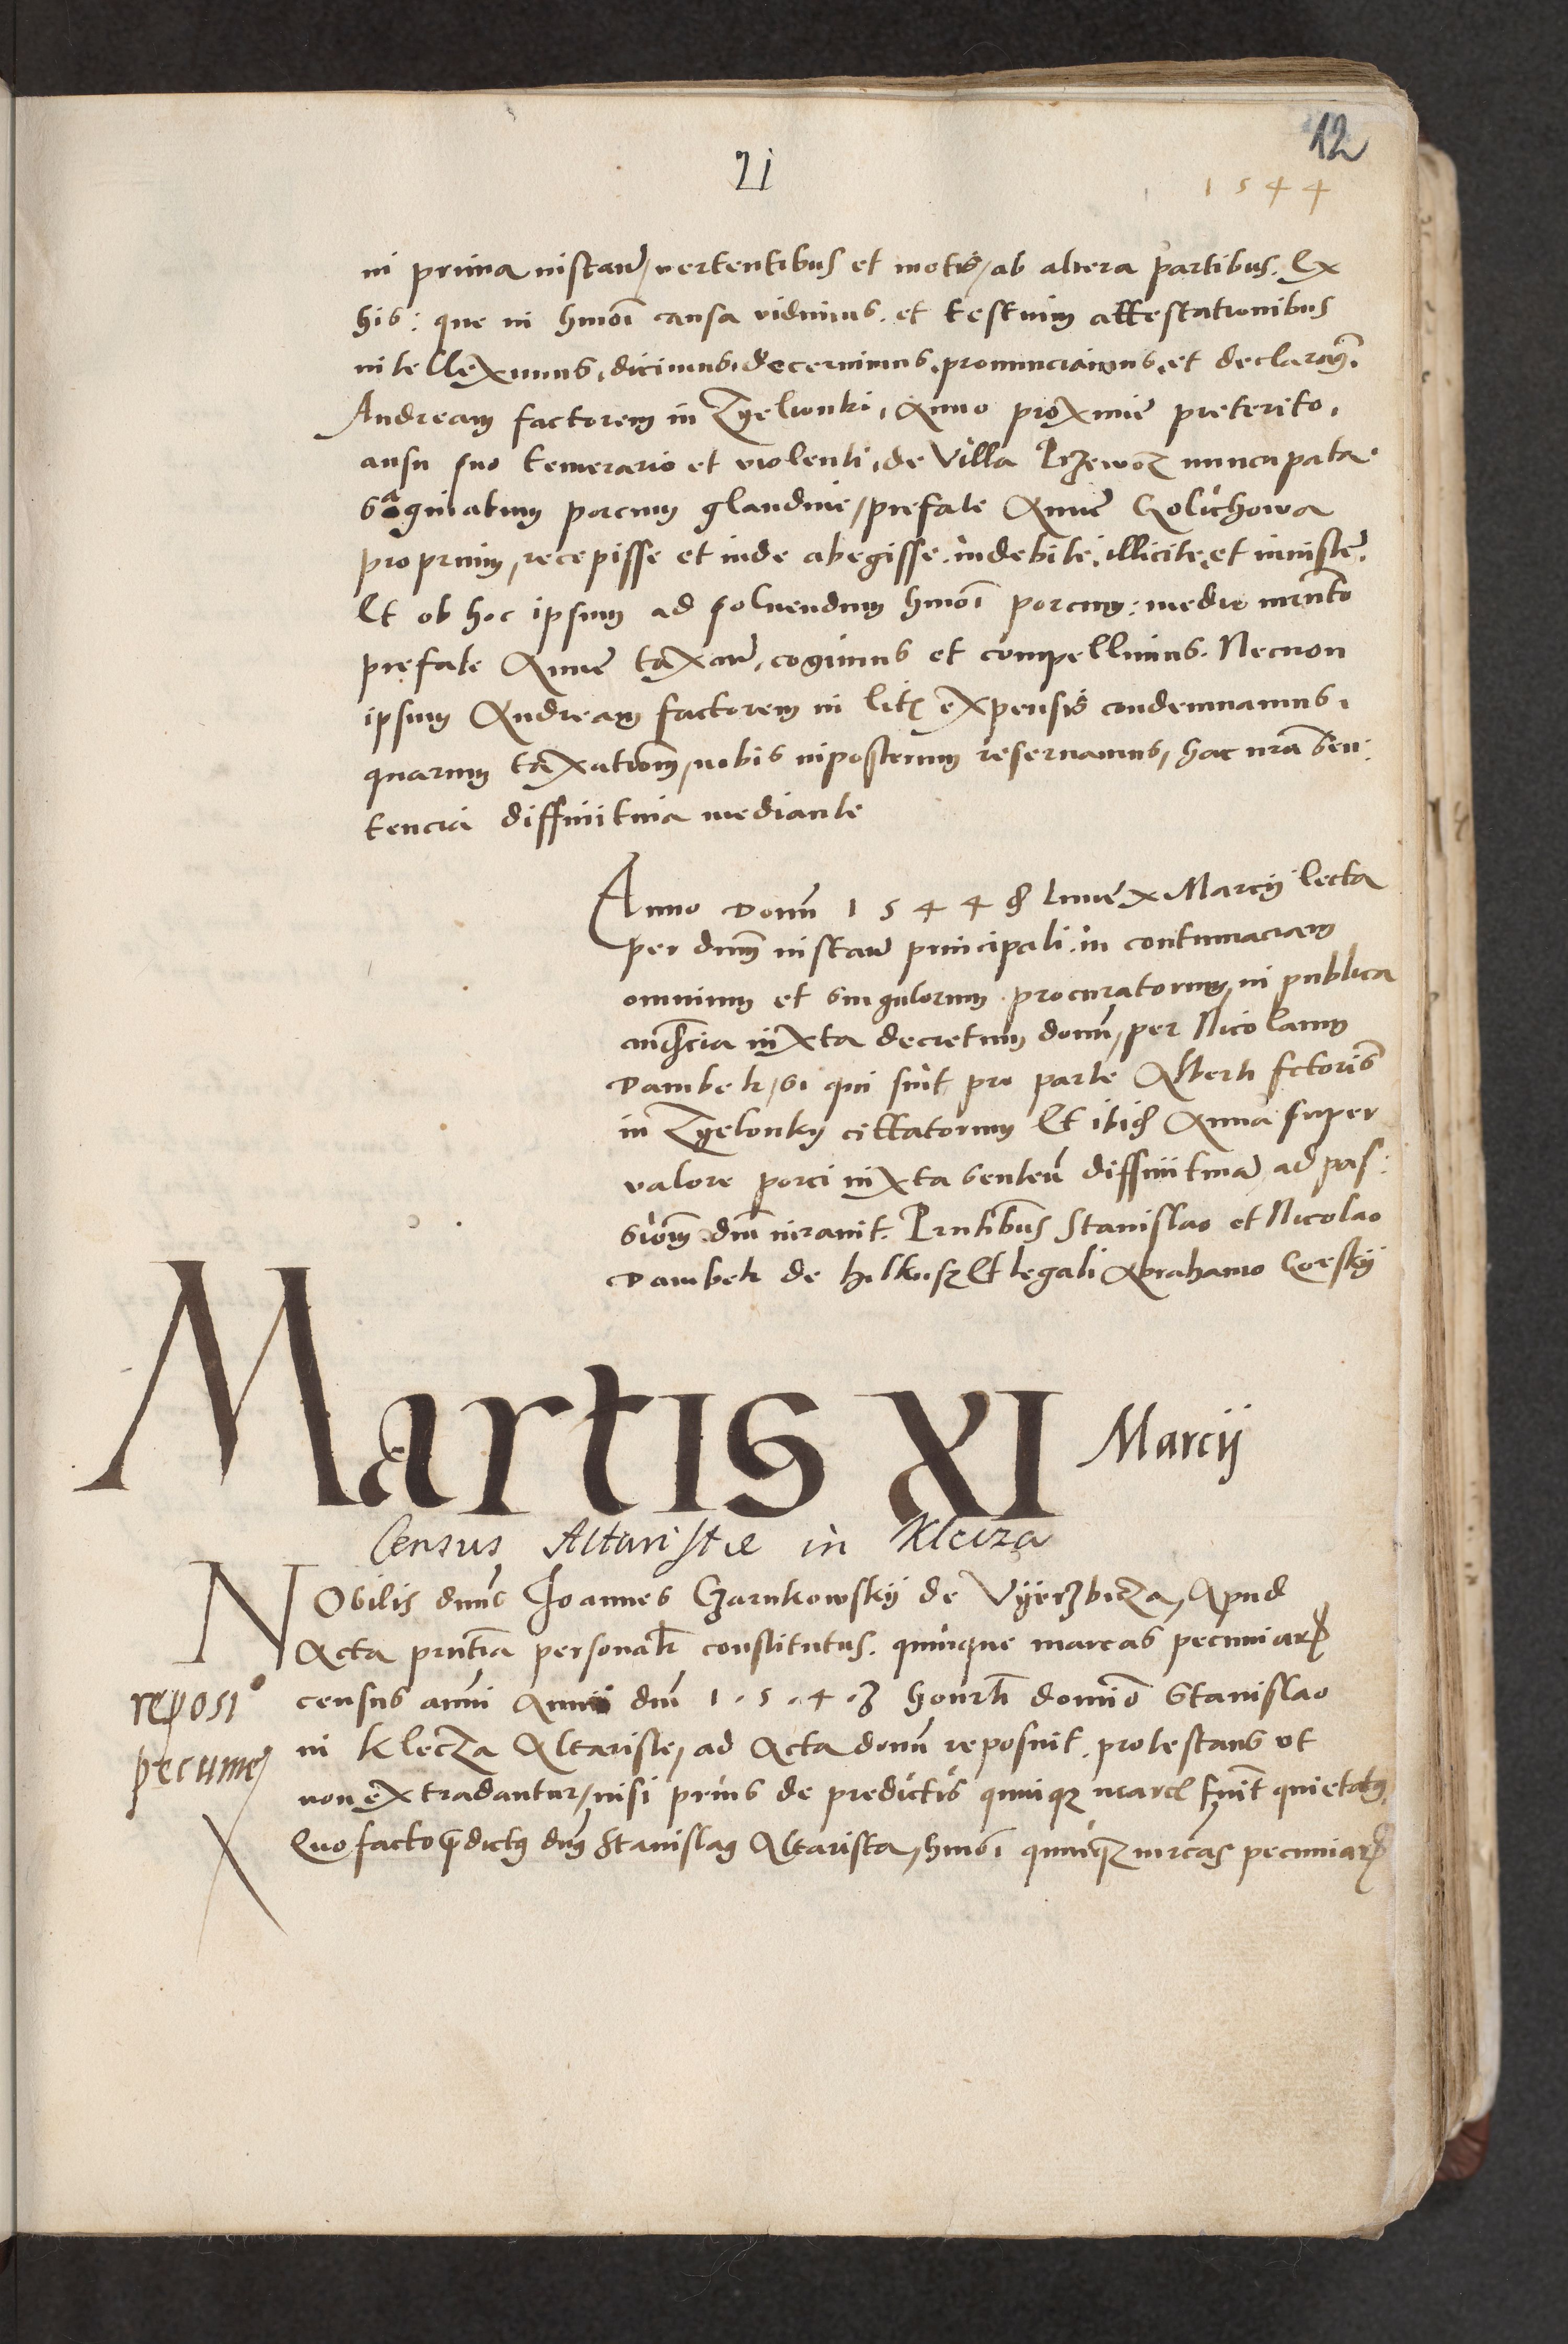 21
12
1544
in prima instan̄, vertentibus et motis, ab altera partibus. Ex
his: que in hmōi causa vidimus. et testium attestationibus
intelleximus, dicimus, decernimus, pronunciamus, et declaram̄.
Andream factorem in Zyelionki, Anno proxime preterito,
ausu suo temerario et violenti, de Villa Przewoz nuncupata
saginatum porcum glandine, prefate Anne Golichowa
proprium, recepisse et inde abegisse. indebite, illicite, et iniuste.
Et ob hoc ipsum ad soluendum hmōi porcum: medio iurnto
prefate Anne taxan̄, cogimus et compellimus. Necnon
ipsum Andream factorem in litis expensis condemnamus,
quarum taxationem, nobis inposterum reseruamus, hac nr̄a sen:
tencia diffinitiua mediante
Anno domī 1544 die lune x Marcij lecta
per dnm̄ instan̄ principali. in contumaciam
omnium et singulorum procuratorum, in publica
audiēcia iuxta decretum domī, per Nicolaum
Dambek, si qui sint pro parte Alberti fctoris
in Zyelonky cittatorum Et ibidē Anna super
valore porci iuxta senten̄ diffinitiuā ad pas:
sionem dnī iurauit. Prntibus Stanislao et Nicolao
Dambek de hilkusz Et legali Abrahamo Goesky
Martis XI Marcij
Census Altaristæ in Klecza
NObilis dnūs Joannes Czarnkowskij de Vyerzbicza, Apud
Acta prntia personalr̄ constitutus. quinque marcas pecuniar̄
census anni Anni dnī 1.5.4.3 honorli domino Stanislao
in Klecza Altariste, ad Acta domī reposuit. protestans vt
non extradantur, nisi prius de predictis quinque marcis fuīt quietatus.
Quo facto predictus dnūs Stanislaus Altarista, hmōi quinque mrcas pecuniar̄
reposio
pecunie